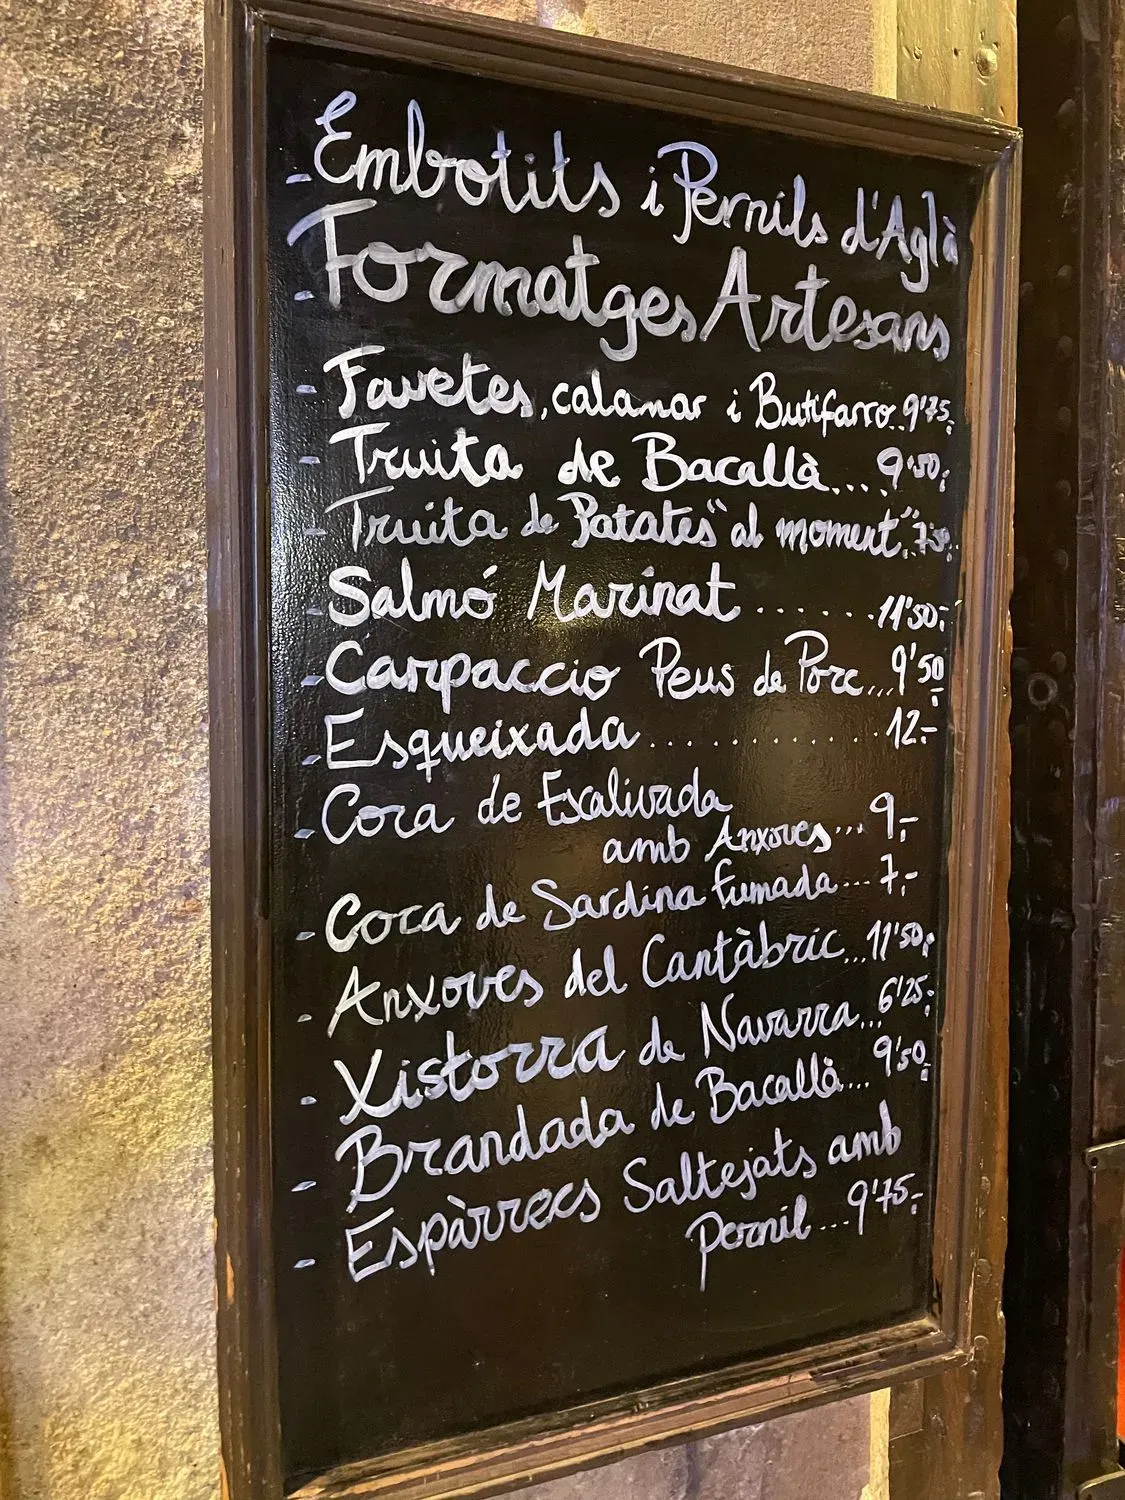 - Embotits i Pernils d'Aglà
- Formatges Artesans
- Favetes, calamar i Butifarro..9'75.-
- Truita de Bacallà....9'50.-
- Truita de Patates "al moment"..7'50.-
- Salmó Marinat.......11'50.-
- Carpaccio Peus de Porc...9'50.-
- Esqueixada............12.-
- Coca de Escalivada
amb Anxoves...9,-
- Coca de Sardina fumada...7,-
- Anxoves del Cantàbric...11'50.-
- Xistorra de Navarra...6'25.-
- Brandada de Bacallà...9'50.-
- Espàrrecs Saltejats amb
Pernil...9'75.-